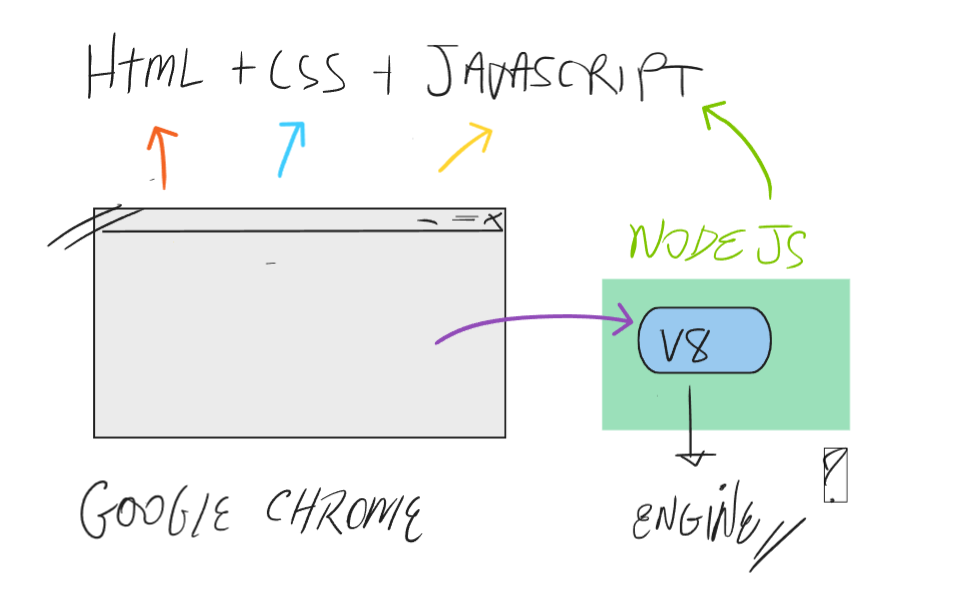 HTML + CSS + JAVASCRIPT
NODE JS
V8
GOOGLE CHROME
ENGINE
?